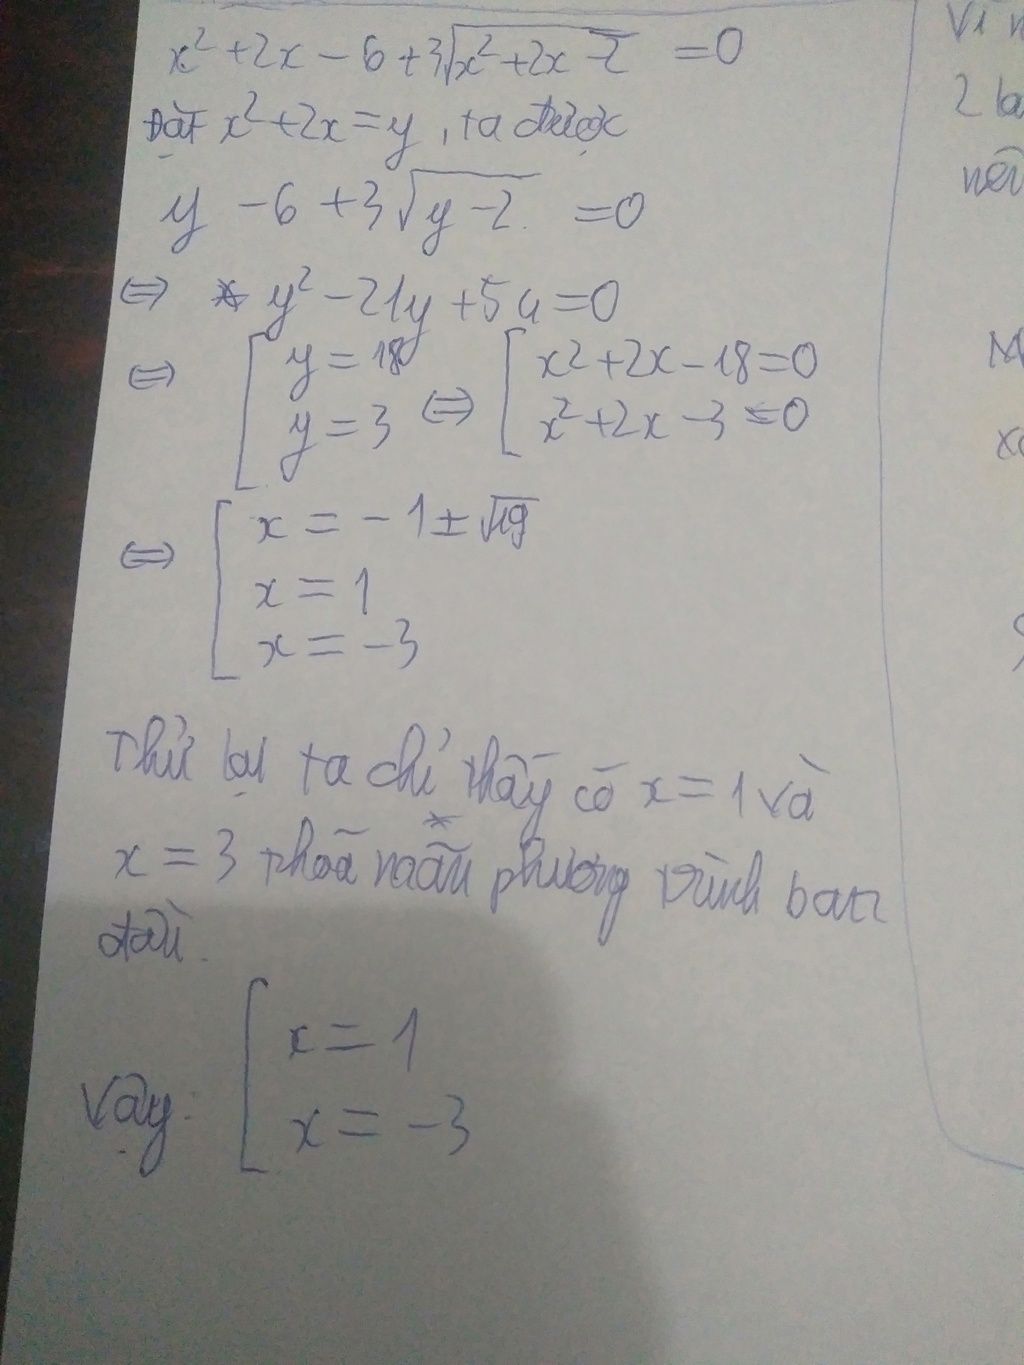 x² + 2x - 6 + 3√(x² + 2x - 2) = 0
Đặt x² + 2x = y, ta được
y - 6 + 3√(y - 2) = 0
⇔ y² - 21y + 54 = 0
⇔ [ y = 18 ; y = 3 ⇔ [ x² + 2x - 18 = 0 ; x² + 2x - 3 = 0
⇔ [ x = -1 ± √19
x = 1
x = -3
Thử lại ta chỉ thấy có x = 1 và
x = 3 thoã mãn phương trình ban
đầu.
Vậy: [ x = 1
x = -3
Vì
2